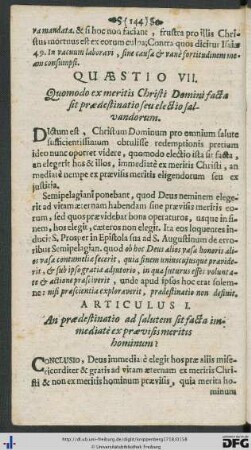 (144)
ra mandata. & si hoc non faciant, frustra pro illis Chri-
stus mortuus est ex eorum culpa; Contra quos dicitur Isaiæ
49. In vacuum laboravi, sine causa & vanè fortitudinem me-
am consumpsi.
QUÆSTIO VII.
Quomodo ex meritis Christi Domini facta
sit prædestinatio seu electio sal-
vandorum.
Dictum est, Christum Dominum pro omnium salute
sufficientissimam obtulisse redemptionis pretium
ideo nunc oportet videre, quomodo electio ista sit facta,
an elegerit hos & illos, immediatè ex meritis Christi, an
mediatè nempe ex prævisis meritis eligendorum seu ex
justitia.
Semipelagiani ponebant, quod Deus neminem elege-
rit ad vitam æternam habendam sine prævisis meritis eo-
rum, sed quos prævidebat bona operaturos, usque in fi-
nem, hos elegit, cæteros non elegit. Ita eos loquentes in-
ducit S. Prosper in Epistola sua ad S. Augustinum de erro-
ribus Semipelagian. quod ad hoc Deus alios vasa honoris ali-
os vasa contumeliæ fecerit, quia finem uniuscujusque prævide-
rit, & sub ipso gratiæ adjutorio, in qua futurus esset volunta-
te & actione præsciverit, unde apud ipsos hoc erat solem-
ne: nisi præscientia exploraverit, prædestinatio non definit.
ARTICULUS I.
An prædestinatio ad salutem sit facta im-
mediatè ex prævisis meritis
hominum?
Conclusio, Deus immediatè elegit hos præ aliis mise-
ricorditer & gratis ad vitam æternam ex meritis Chri-
sti & non ex meritis hominum prævisis, quia merita ho-
minum
http://dl.ub.uni-freiburg.de/diglit/knippenberg1718/0158
© Universitätsbibliothek Freiburg
gefördert durch die
DFG